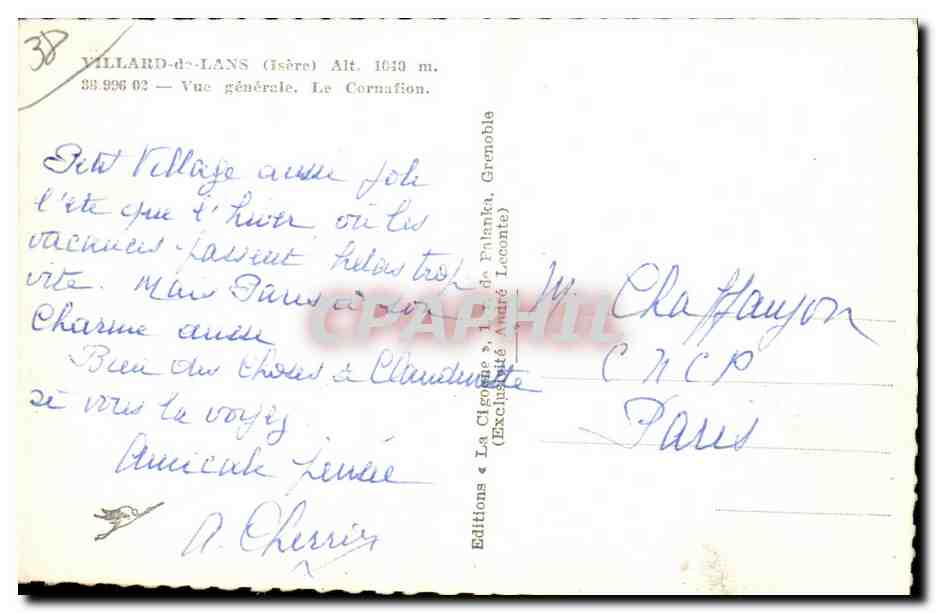 38
VILLARD-de-LANS (Isère) Alt. 1040 m.
38.996 02 — Vue générale. Le Cornafion.
Petit Village aussi joli
l'été que l'hiver, où les
vacances passent hélas trop
vite. Mais Paris a son
Charme aussi
Bien des choses à Claudinette
si vous la voyez
Amicale pensée
A. Cherrier
Editions « La Cigogne », 1, r. de Palanka, Grenoble
(Exclusivité André Leconte)
M. Chaffaujon
CNCP
Paris
CPAPHIL